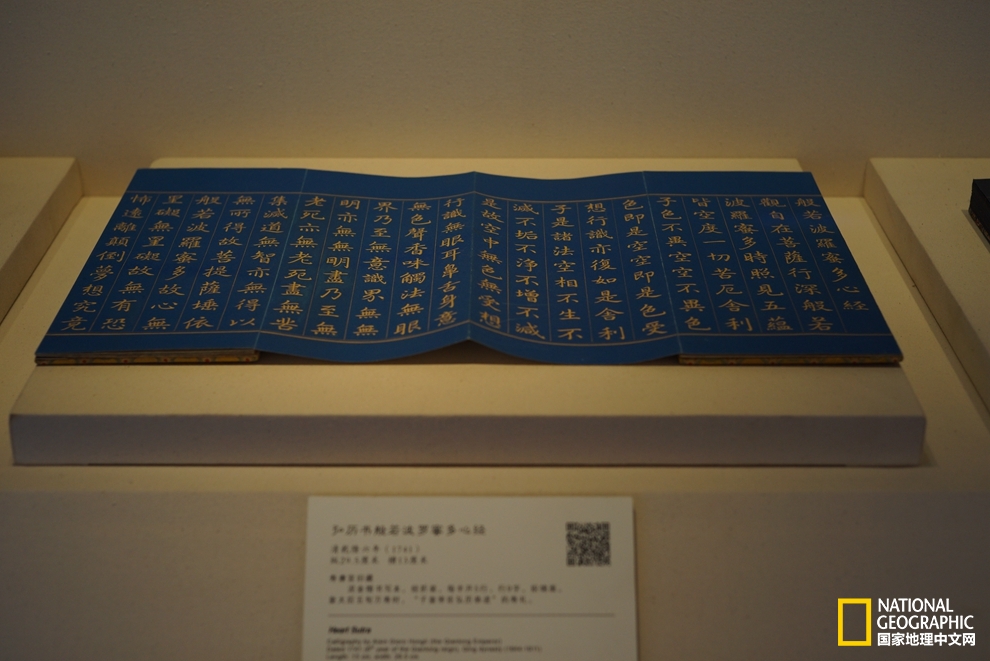 般若波羅蜜多心經
觀自在菩薩行深般若
波羅蜜多時照見五蘊
皆空度一切苦厄舍利
子色不異空空不異色
色即是空空即是色受
想行識亦復如是舍利
子是諸法空相不生不
滅不垢不淨不增不減
是故空中無色無受想
行識無眼耳鼻舌身意
無色聲香味觸法無眼
界乃至無意識界無無
明亦無無明盡乃至無
老死亦無老死盡無苦
集滅道無智亦無得以
無所得故菩提薩埵依
般若波羅蜜多故心無
罣礙無罣礙故無有恐
怖遠離顛倒夢想究竟
弘历书般若波罗蜜多心经
清乾隆六年（1741）
Heart Sutra
NATIONAL
GEOGRAPHIC
国家地理中文网